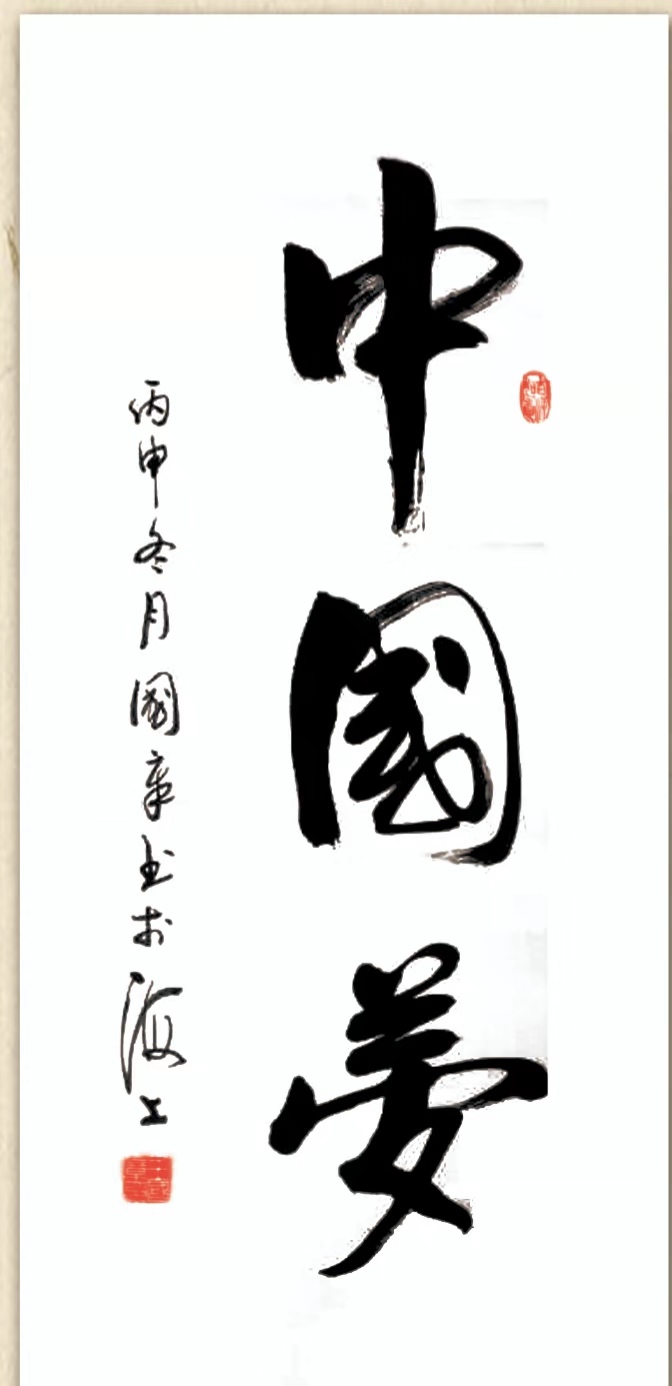 中國夢
丙申冬月國章书於海上